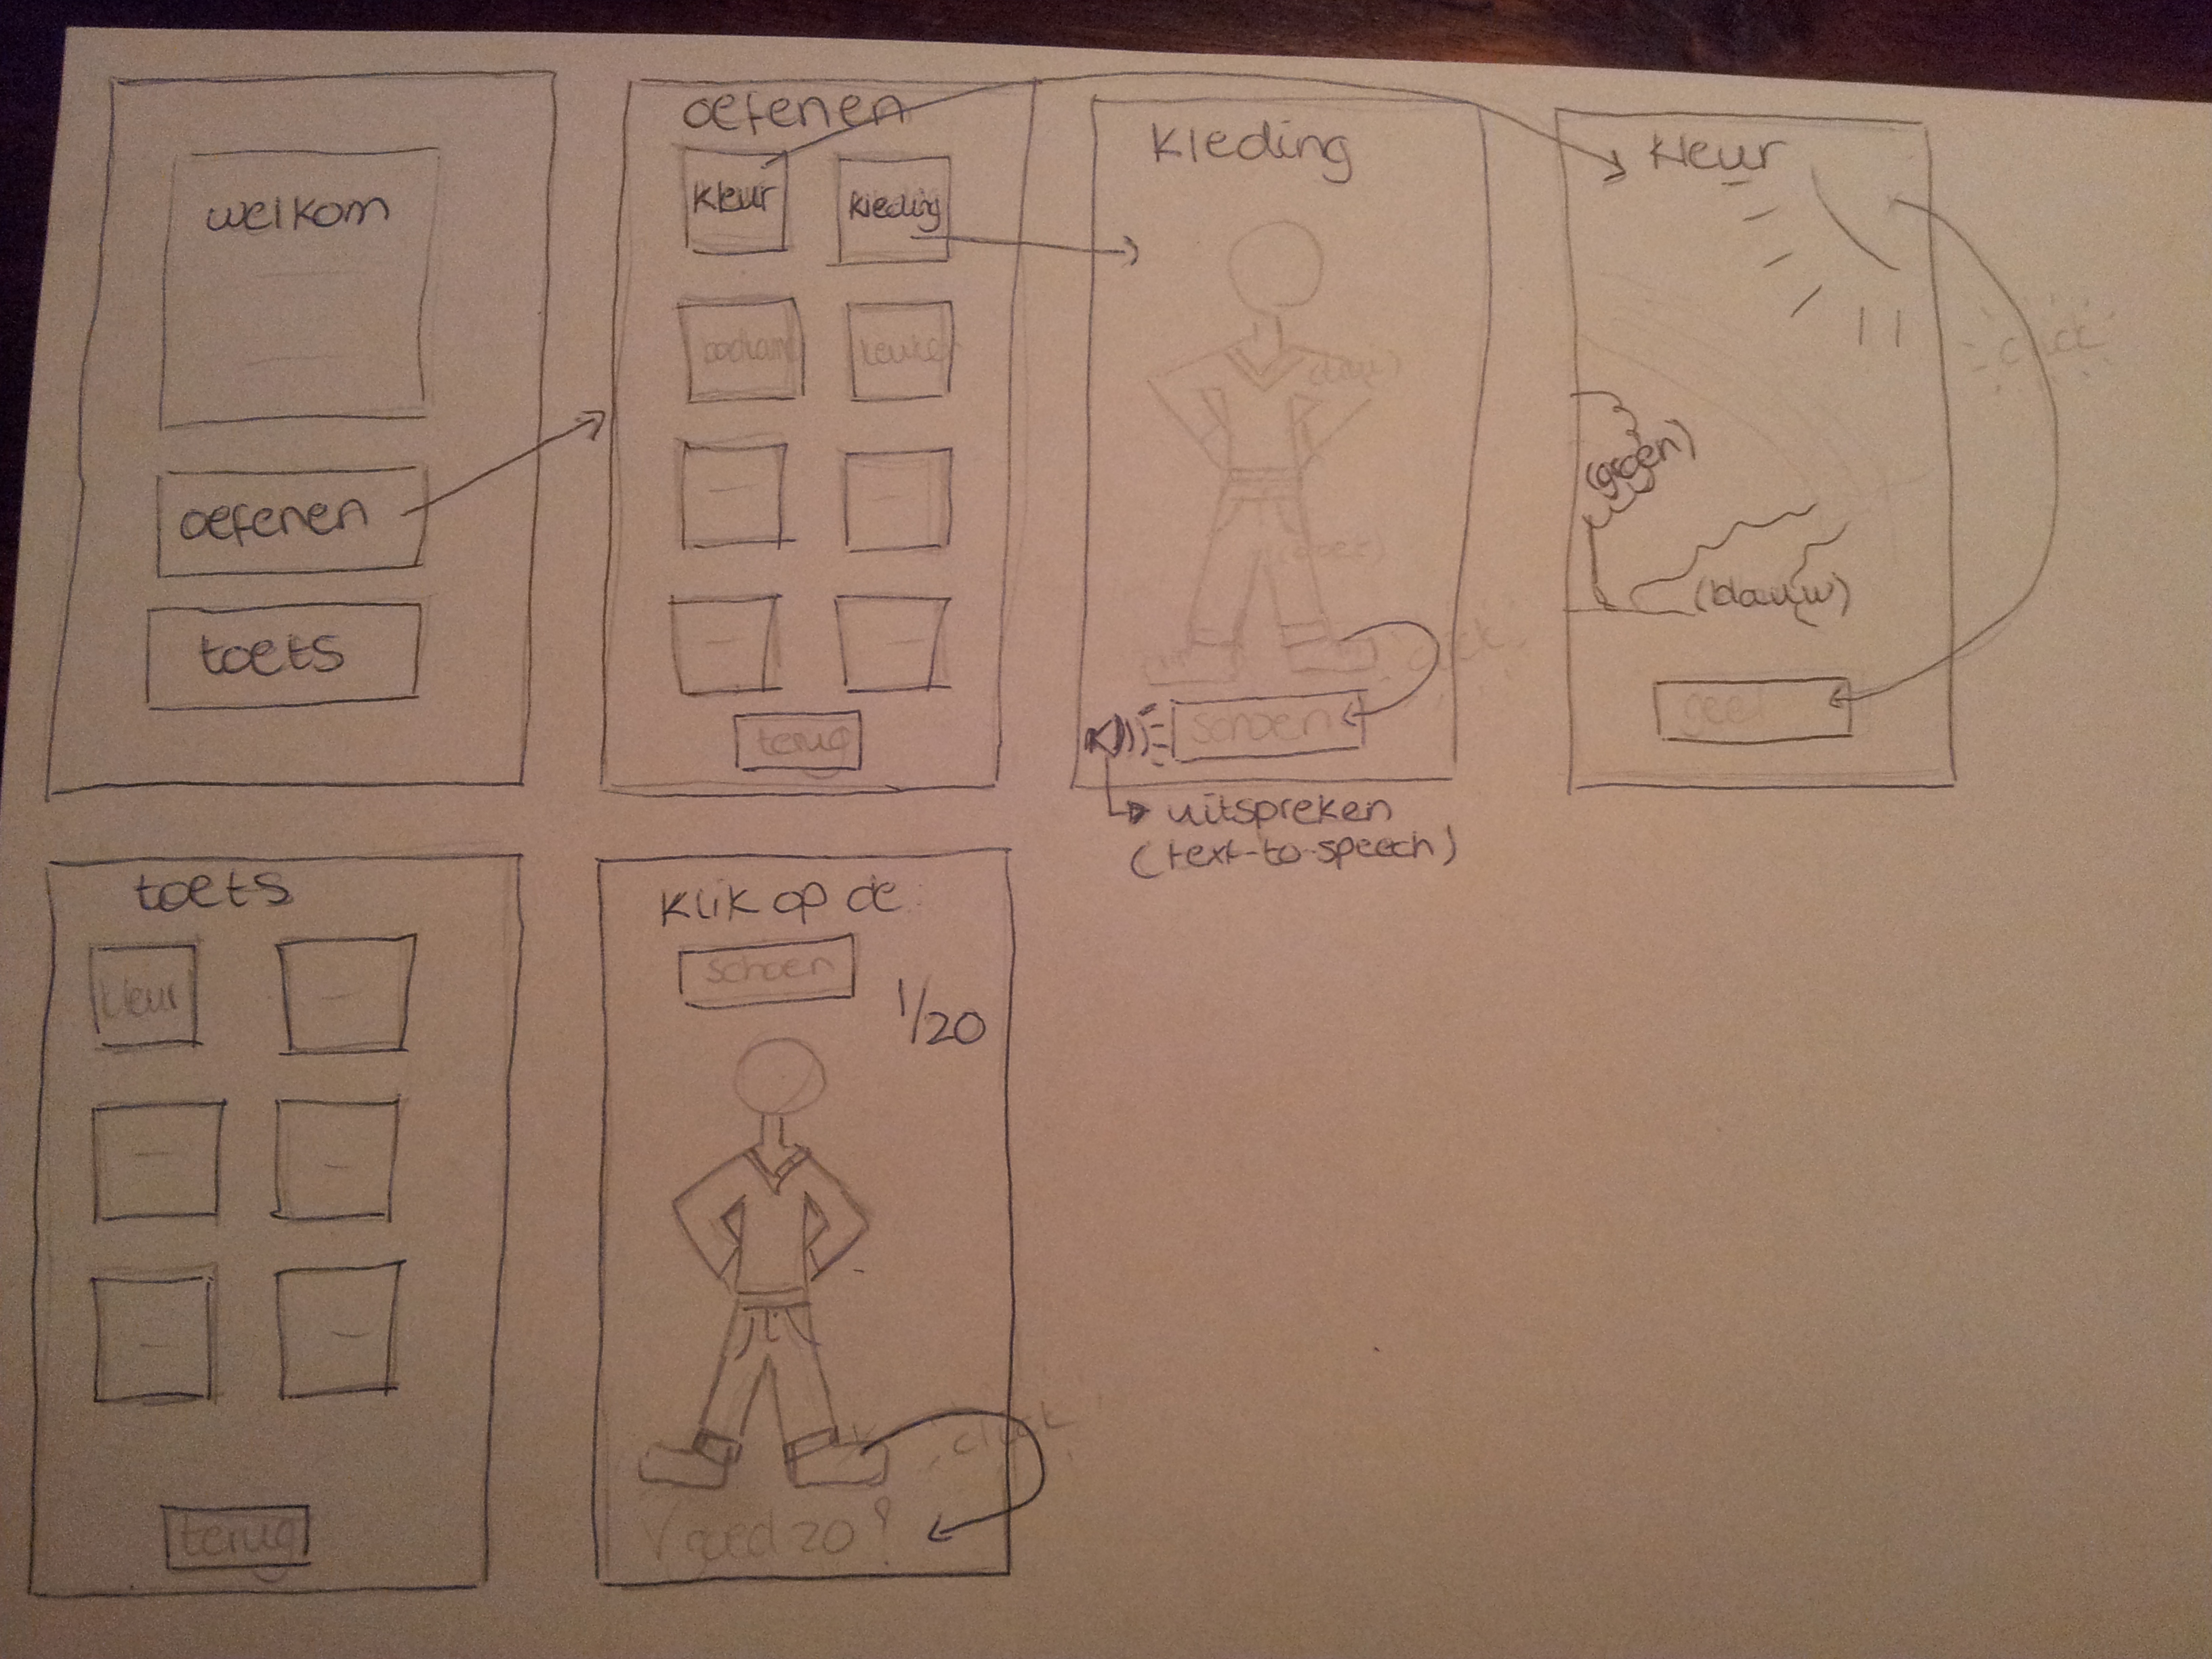 welkom
oefenen
toets
oefenen
kleur
kleding
terug
kleding
(blauw)
click
schoen
uitspreken
(text-to-speech)
kleur
(groen)
(blauw)
click
geel
toets
kleur
terug
Klik op de
schoen
1/20
click
goed zo!